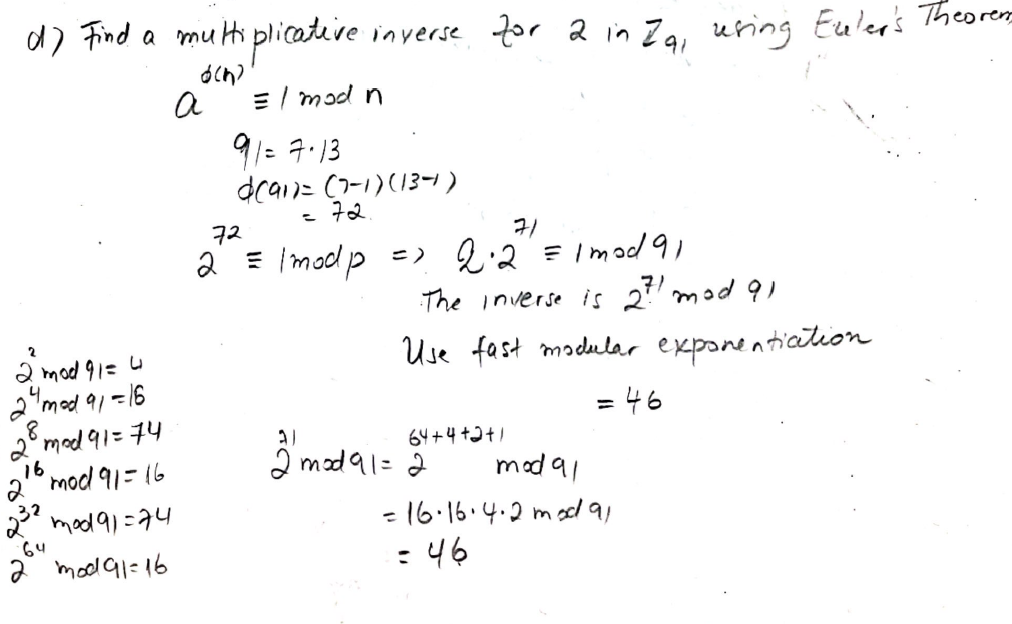 d) Find a multiplicative inverse for 2 in Z91 using Euler's Theorem
a^φ(n) ≡ 1 mod n
91 = 7·13
φ(91) = (7-1)(13-1)
= 72
2^72 ≡ 1 mod p => 2·2^71 ≡ 1 mod 91
The inverse is 2^71 mod 91
Use fast modular exponentiation
= 46
2^2 mod 91 = 4
2^4 mod 91 = 16
2^8 mod 91 = 74
2^16 mod 91 = 16
2^32 mod 91 = 74
2^64 mod 91 = 16
2^71 mod 91 = 2^64+4+2+1 mod 91
= 16·16·4·2 mod 91
= 46